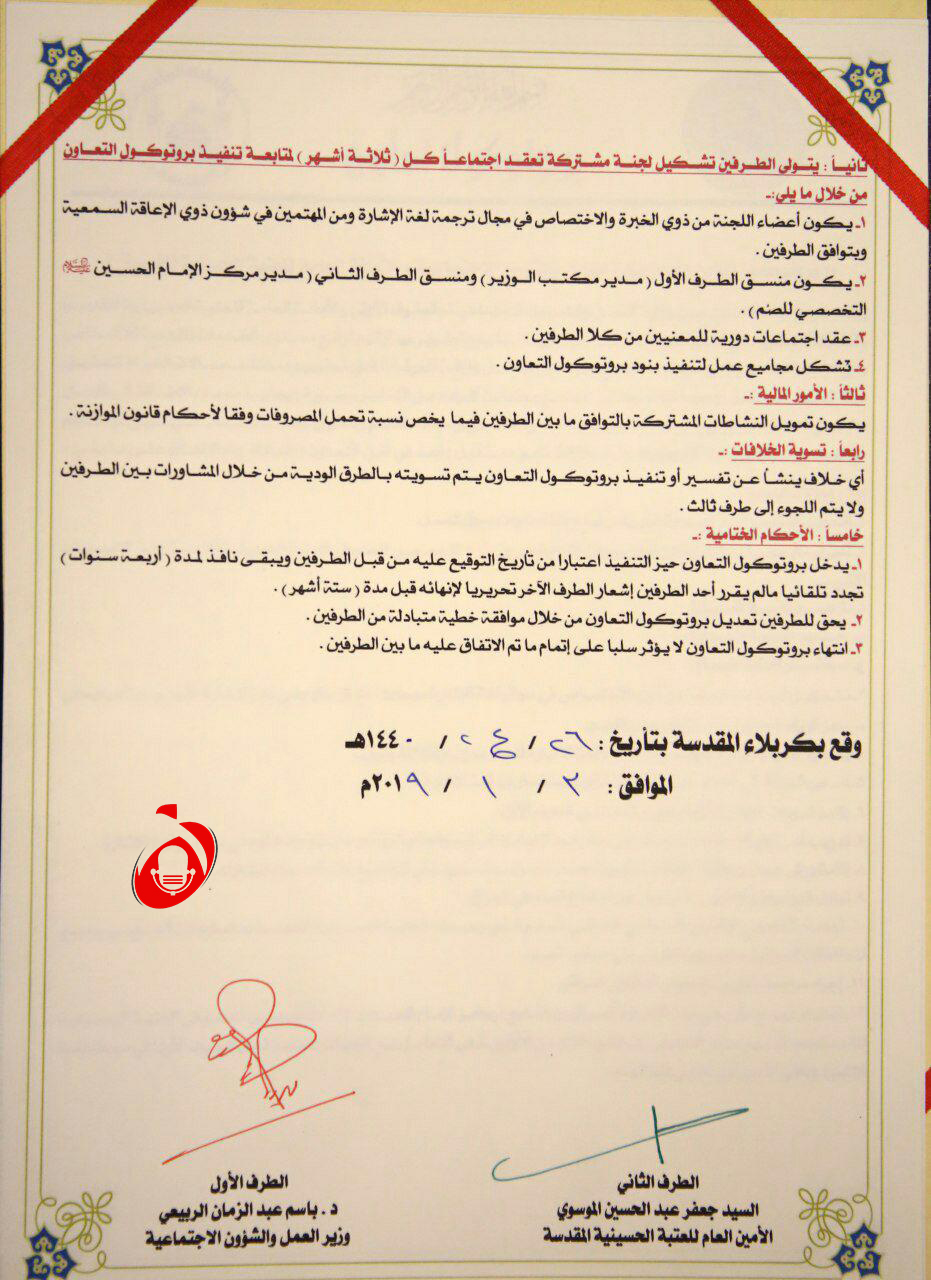 ثانياً : يتولى الطرفين تشكيل لجنة مشتركة تعقد اجتماعاً كل ( ثلاثة أشهر ) لمتابعة تنفيذ بروتوكول التعاون
من خلال ما يلي:ـ
١ـ يكون أعضاء اللجنة من ذوي الخبرة والاختصاص في مجال ترجمة لغة الإشارة ومن المهتمين في شؤون ذوي الإعاقة السمعية
وبتوافق الطرفين .
٢ـ يكون منسق الطرف الأول ( مدير مكتب الوزير ) ومنسق الطرف الثاني ( مدير مركز الإمام الحسين
التخصصي للصم ) .
٣ـ عقد اجتماعات دورية للمعنيين من كلا الطرفين .
٤ـ تشكل مجاميع عمل لتنفيذ بنود بروتوكول التعاون .
ثالثاً : الأمور المالية :ـ
يكون تمويل النشاطات المشتركة بالتوافق ما بين الطرفين فيما يخص نسبة تحمل المصروفات وفقا لأحكام قانون الموازنة .
رابعاً : تسوية الخلافات :ـ
أي خلاف ينشأ عن تفسير أو تنفيذ بروتوكول التعاون يتم تسويته بالطرق الودية من خلال المشاورات بين الطرفين
ولا يتم اللجوء إلى طرف ثالث .
خامساً : الأحكام الختامية :ـ
١ـ يدخل بروتوكول التعاون حيز التنفيذ اعتبارا من تأريخ التوقيع عليه من قبل الطرفين ويبقى نافذ لمدة ( أربعة سنوات )
تجدد تلقائيا مالم يقرر أحد الطرفين إشعار الطرف الآخر تحريريا لإنهائه قبل مدة ( ستة أشهر ) .
٢ـ يحق للطرفين تعديل بروتوكول التعاون من خلال موافقة خطية متبادلة من الطرفين .
٣ـ انتهاء بروتوكول التعاون لا يؤثر سلبا على إتمام ما تم الاتفاق عليه ما بين الطرفين .
وقع بكربلاء المقدسة بتأريخ : ٢٦ / ع ٢ / ١٤٤٠هـ
الموافق : ٣ / ١ / ٢٠١٩م
الطرف الثاني
السيد جعفر عبد الحسين الموسوي
الأمين العام للعتبة الحسينية المقدسة
الطرف الأول
د . باسم عبد الزمان الربيعي
وزير العمل والشؤون الاجتماعية